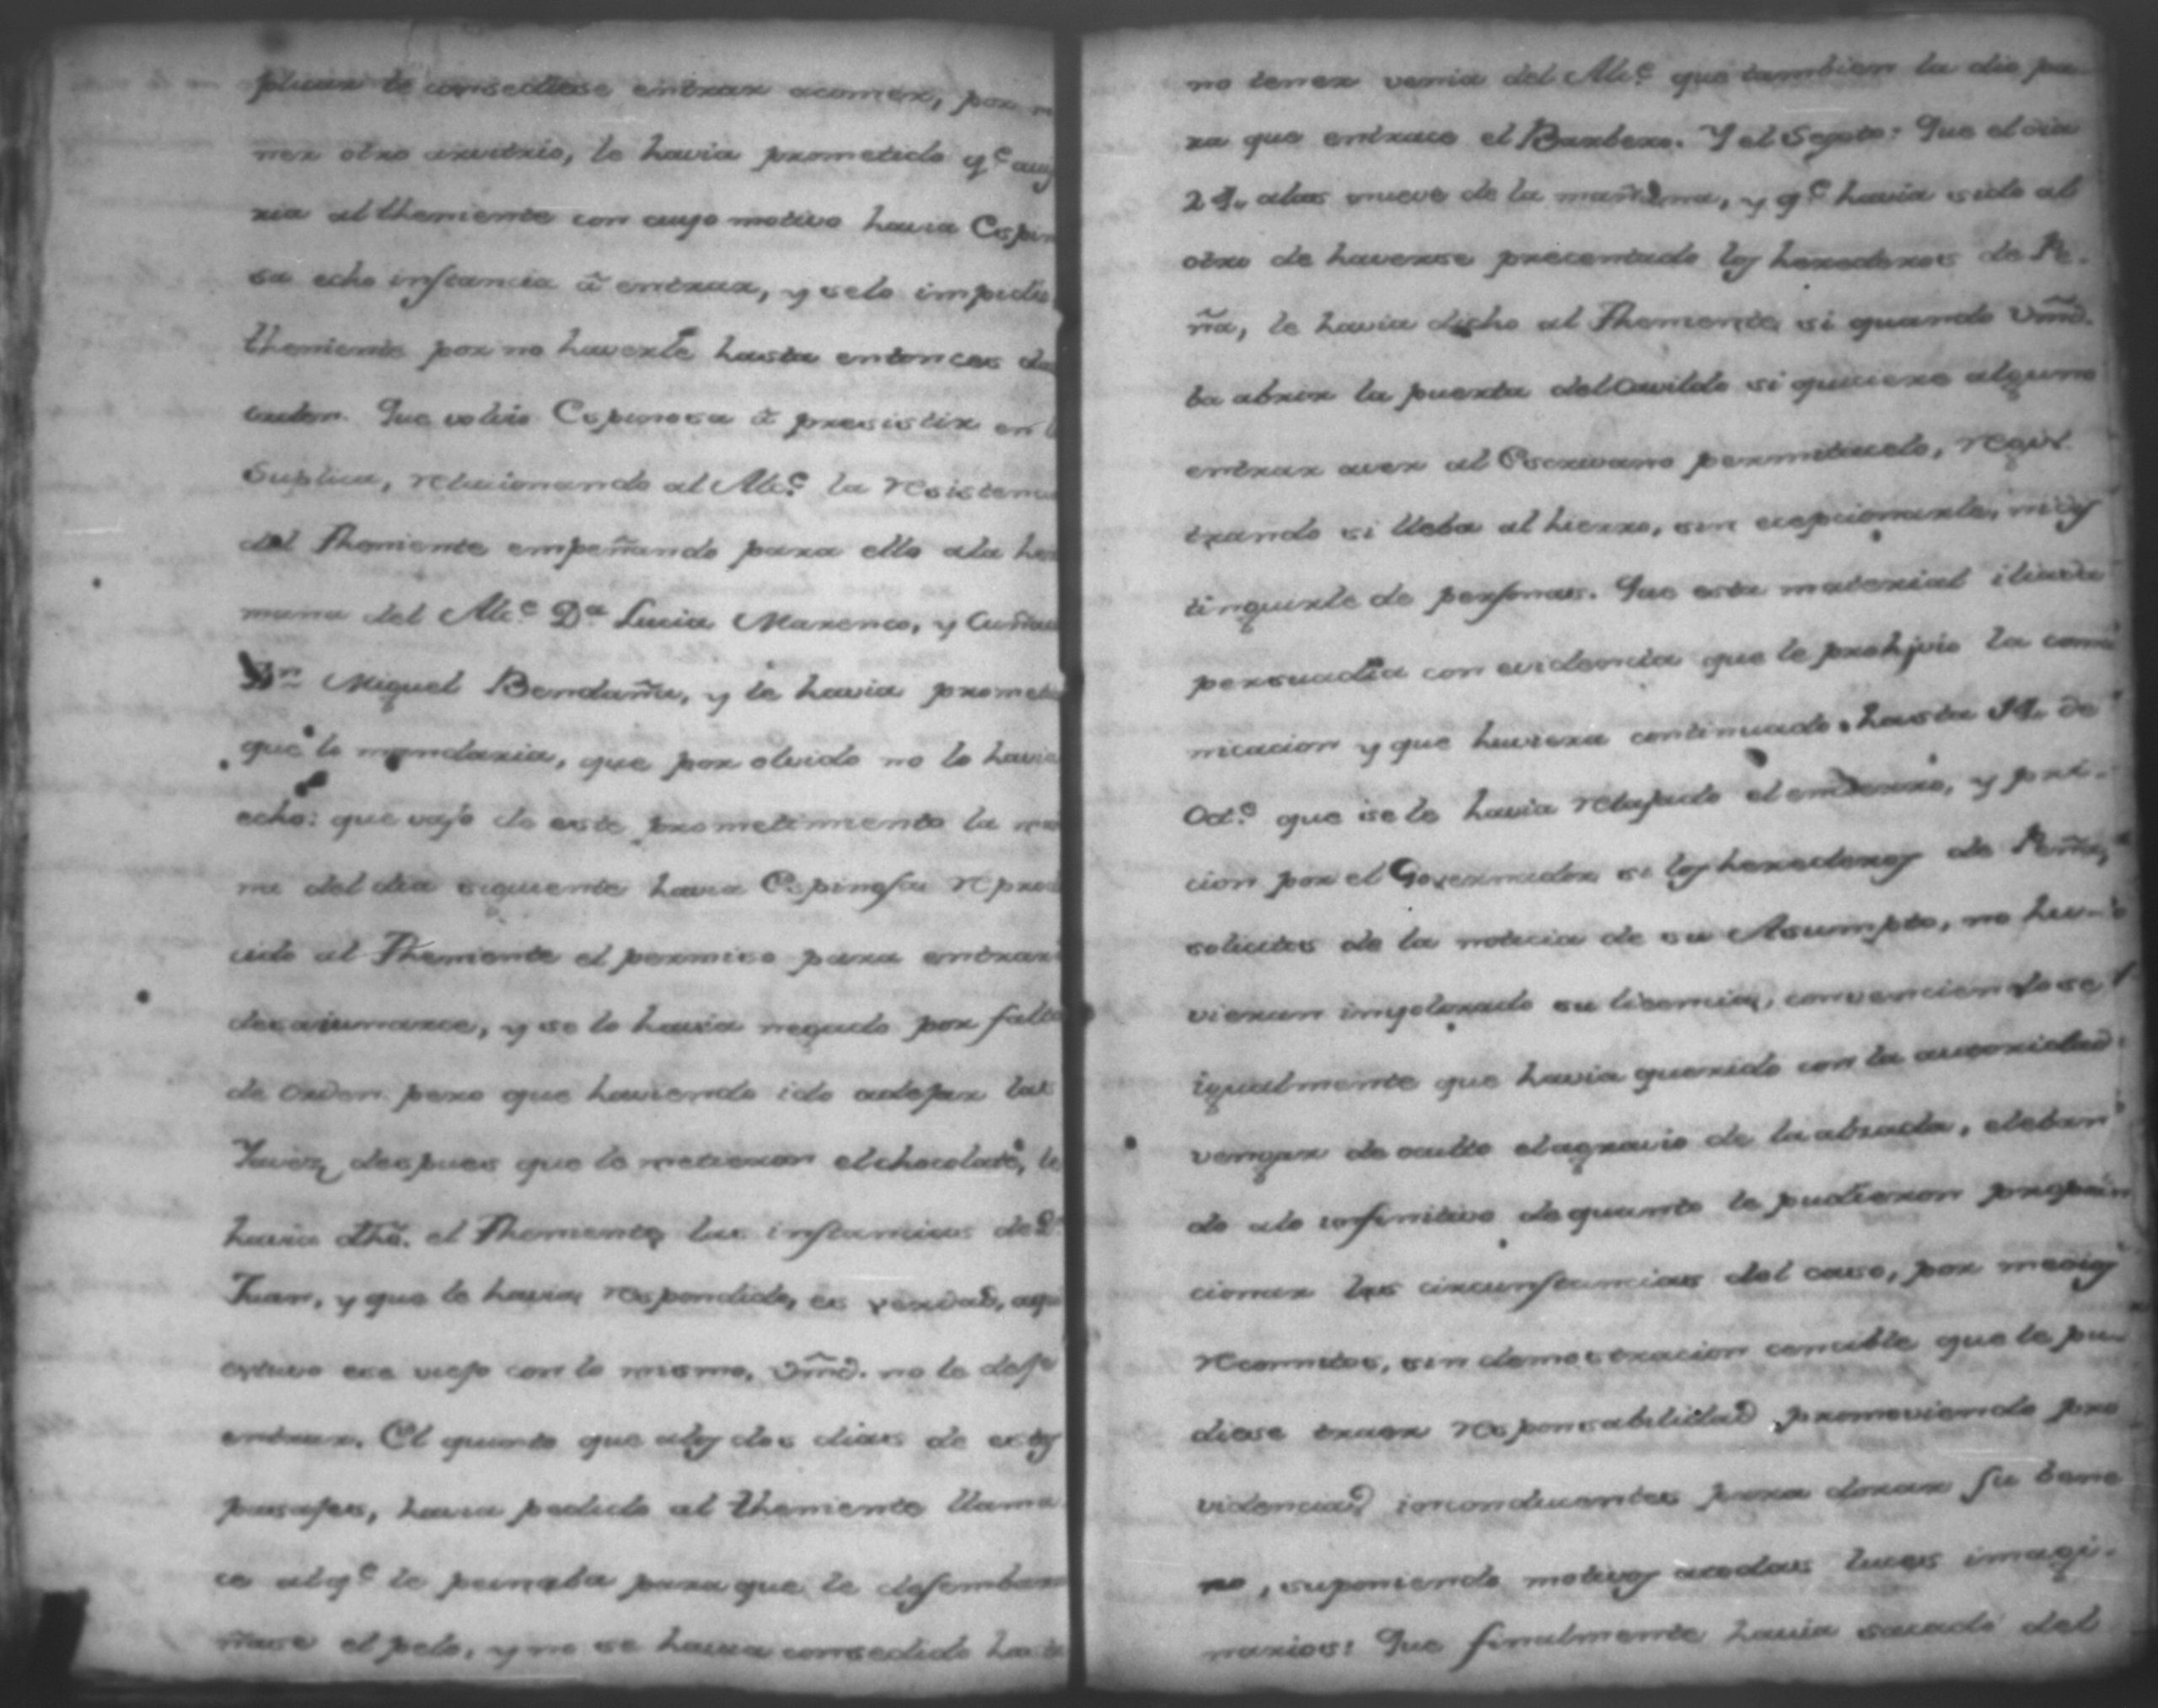 plicar le consediese entrar acomer, por n
ner otro arvitrio, le havia prometido q.e avi
ria al theniente con cuyo motivo havia Espin
sa echo instancia â entrar, y selo impidio
theniente por no haverle hasta entonces da
orden. Que volvio Espinosa â presistir en l
Suplica, relacionando al Alc.e la resistenc
del Theniente empeñando para ello ala her
mana del Alc.e D.a Lucia Marenco, y Cuñado
D.n Miguel Bendaña, y le havia prometi
que lo mandaria, que por olvido no lo havia
echo: que vajo de este prometimiento la ma
na del dia siguiente havia Espinosa repro
ido al Theniente el permiso para entrar
desaiunarce, y se lo havia negado por falta
de orden pero que haviendo ido adejar las
despues que le metieron el chocolate, le
havia dho. el Theniente las instancias de D.n
Juan, y que le havia respondido, es verdad, aqui
estuvo ese viejo con lo mismo, Vmd. no le deje
entrar. El quarto que alos dos dias de estos
pasajes, havia pedido al theniente llama
ce alq.e le peinaba para que le desembara
ñase el pelo, y no se havia consedido hasta
no tener venia del Alc.e que tambien la dio pa-
ra que entrace el Barbero. Y el Septo: Que el dia
29. alas nueve de la mañana, y q.e havia sido al
otro de haverse precentado los herederos de Pe-
ña, le havia dicho al Theniente si quando Vmd.
ba abrir la puerta del Cavildo si quiciere alguno
entrar aver al Escrivano permitacelo, regis-
trando si lleba al hierro, sin ecepcionarle, ni dis
tinguirle de personas. Que esta material
persuadia con evidencia que le prohivio la comu
nicacion y que huviera continuado hasta 19. de
Oct.e que se le havia relajado el encierro, y
cion por el Governador si los herederos de Peña,
solicitos de la noticia de su Asumpto, no hu-
vieran implorado su licencia, convenciendose
igualmente que havia querido con la autoridad
vengar de oculto el agravio de la abiada, eleban
do alo infinitivo de quanto le pudieron propor
cionar las circunstancias del caso, por medios
recònditos, sin demostracion cencible que le pu-
diese traer responsabilidad promoviendo pro
videncias inconducentes para dorar su bene
no, suponiendo motivos atodas luces imagi-
narios: Que finalmente havia sacado del